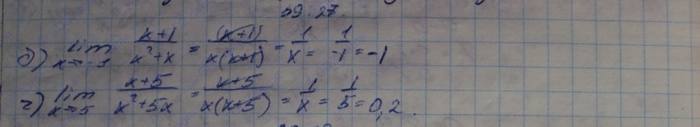 39.27.
б) lim x→-1 x+1/x²+x = (x+1)/x(x+1) = 1/x = 1/-1 = -1
г) lim x→5 x+5/x²+5x = x+5/x(x+5) = 1/x = 1/5 = 0,2.